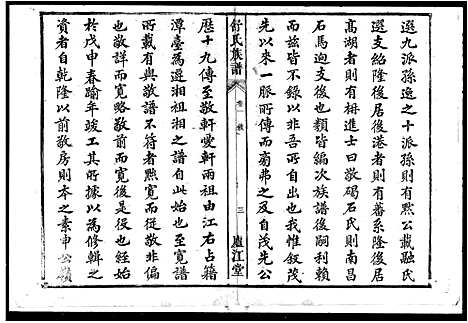 選九派孫逸之十派孫則有熙公載融氏
選支紹隆後居後港者則有蕃系隆後居
高湖者則有栟進士曰敬碣石氏則南昌
石馬迥支後也類皆編次族譜後嗣利賴
而茲皆不錄以非吾所自出也我惟叙茂
先公以來一脈所傳而菊弗之及自茂先公
舒氏族譜
卷一
三
廬江堂
歷十九傳至敬軒愛軒兩祖由江右占籍
潭臺為遷祖湘之譜自此始也至寬譜
所載有與敬譜不符者熙寬而從敬非偏
也敬詳而寬略敬前而寬後是役經始
於戊申春踰年竣工其所據以為修輯之
資者自乾隆以前敬房則本之素申公